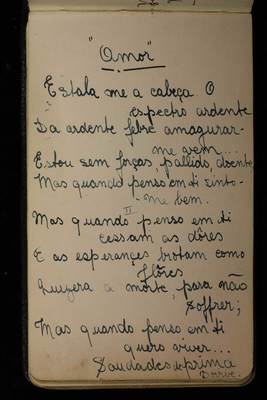 "Amor"
Estala me a cabeça. O
espectro ardente
Da ardente febre amagurar-
me vem...
Estou sem forças, pallido, doente
Mas quando penso em ti sinto-
-me bem.
II
Mas quando penso em ti
cessam as dôres
E as esperanças brotam como
flôres
Quizera a morte, para não
soffrer;
Mas quando penso em ti
quero viver...
Saudades de prima